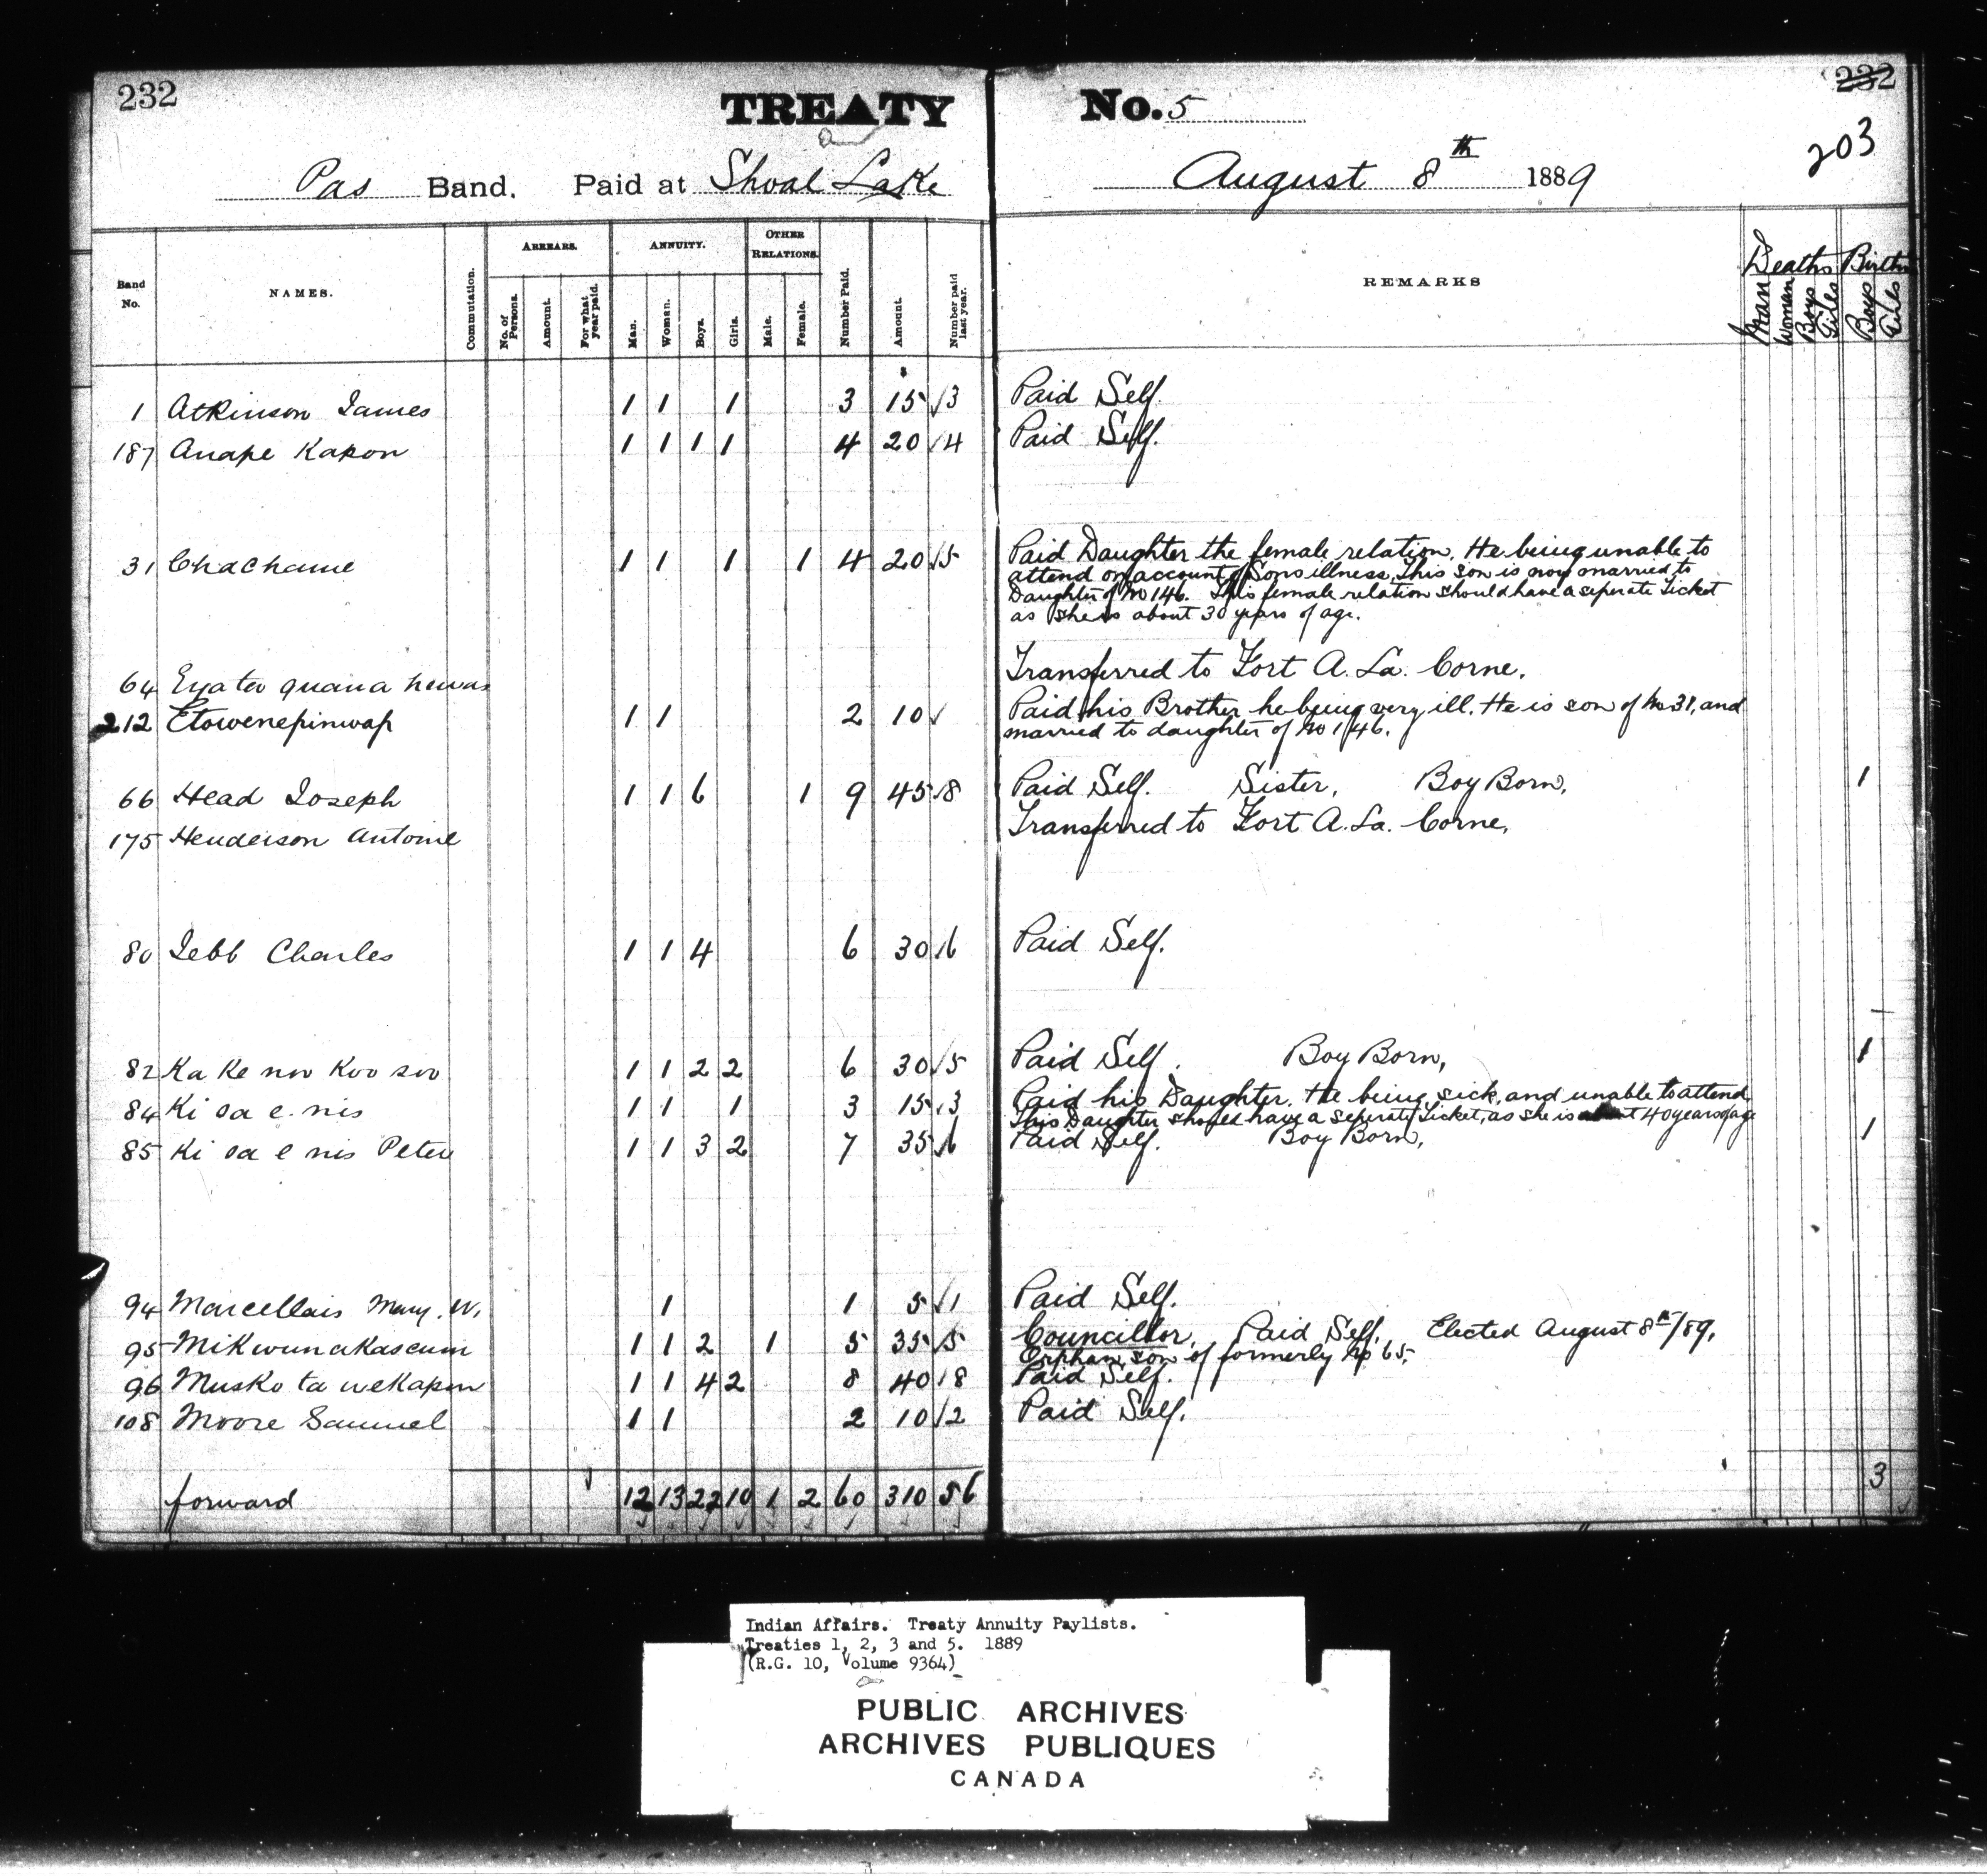 232
TREATY No. 5
232
203
Pas Band. Paid at Shoal Lake August 8th 1889
Band No. NAMES. Commutation. ARREARS. No. of Persons. Amount. For what year paid. ANNUITY. Man. Woman. Boys. Girls. OTHER RELATIONS. Male. Female. Number Paid. Amount. Number paid last year. REMARKS Deaths Man Woman Boys Girls Births Boys Girls
1 Atkinson James 1 1 1 3 15 √3 Paid Self.
187 Anape Kapon 1 1 1 1 4 20 √4 Paid Self.
31 Chachame 1 1 1 1 4 20 √5 Paid Daughter the female relation. He being unable to
attend on account of Sons illness, This son is now married to
Daughter of No 146. This female relation should have a seperate Ticket
as she is about 30 years of age.
64 Transferred to Fort A. La. Corne.
212 Etowenepinwap 1 1 2 10 √ Paid his Brother he being very ill. He is son of No 31, and
married to daughter of No 146.
66 Head Joseph 1 1 6 1 9 45 √8 Paid Self. Sister, Boy Born, 1
175 Henderson Antoine Transferred to Fort A. La. Corne,
80 Jebb Charles 1 1 4 6 30 √6 Paid Self.
82 Ka Ke noo Koo soo 1 1 2 2 6 30 √5 Paid Self. Boy Born, 1
84 Ki sa e. nis 1 1 1 3 15 √3 Paid his Daughter. He being sick, and unable to attend,
This Daughter should have a seperate Ticket, as she is about 40 years of age
85 Ki sa e nis Peter 1 1 3 2 7 35 √6 Paid Self. Boy Born, 1
94 Marcellais Mary. W. 1 1 5 √1 Paid Self.
95 Mikwunakaseum 1 1 2 1 5 35 √5 Councillor. Paid Self. Elected August 8th/89.
Orphan son of formerly No 65.
96 Musko ta wekapow 1 1 4 2 8 40 √8 Paid Self.
108 Moore Samuel 1 1 2 10 √2 Paid Self.
forward 12 13 22 10 1 2 60 310 56 3
Indian Affairs. Treaty Annuity Paylists.
Treaties 1, 2, 3 and 5. 1889
(R.G. 10, Volume 9364)
PUBLIC ARCHIVES
ARCHIVES PUBLIQUES
CANADA